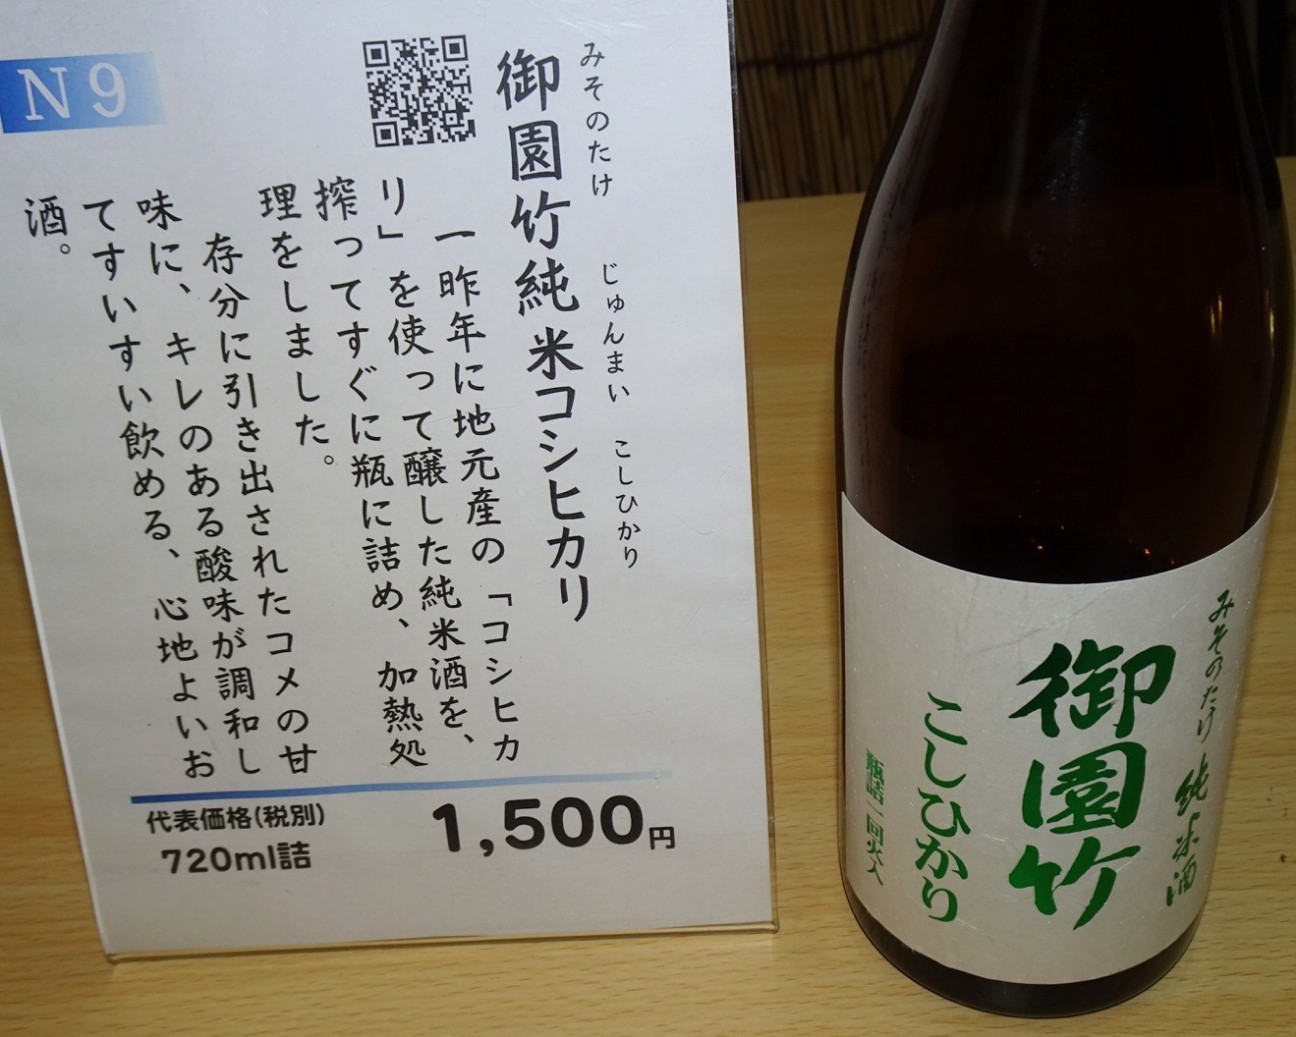 N9
みそのたけ じゅんまい こしひかり
御園竹純米コシヒカリ
一昨年に地元産の「コシヒカ
リ」を使って醸した純米酒を、
搾ってすぐに瓶に詰め、加熱処
理をしました。
存分に引き出されたコメの甘
味に、キレのある酸味が調和し
てすいすい飲める、心地よいお
酒。
代表価格(税別)
720ml詰
1,500円
みそのたけ 純米酒
御園竹
こしひかり
瓶詰一回火入